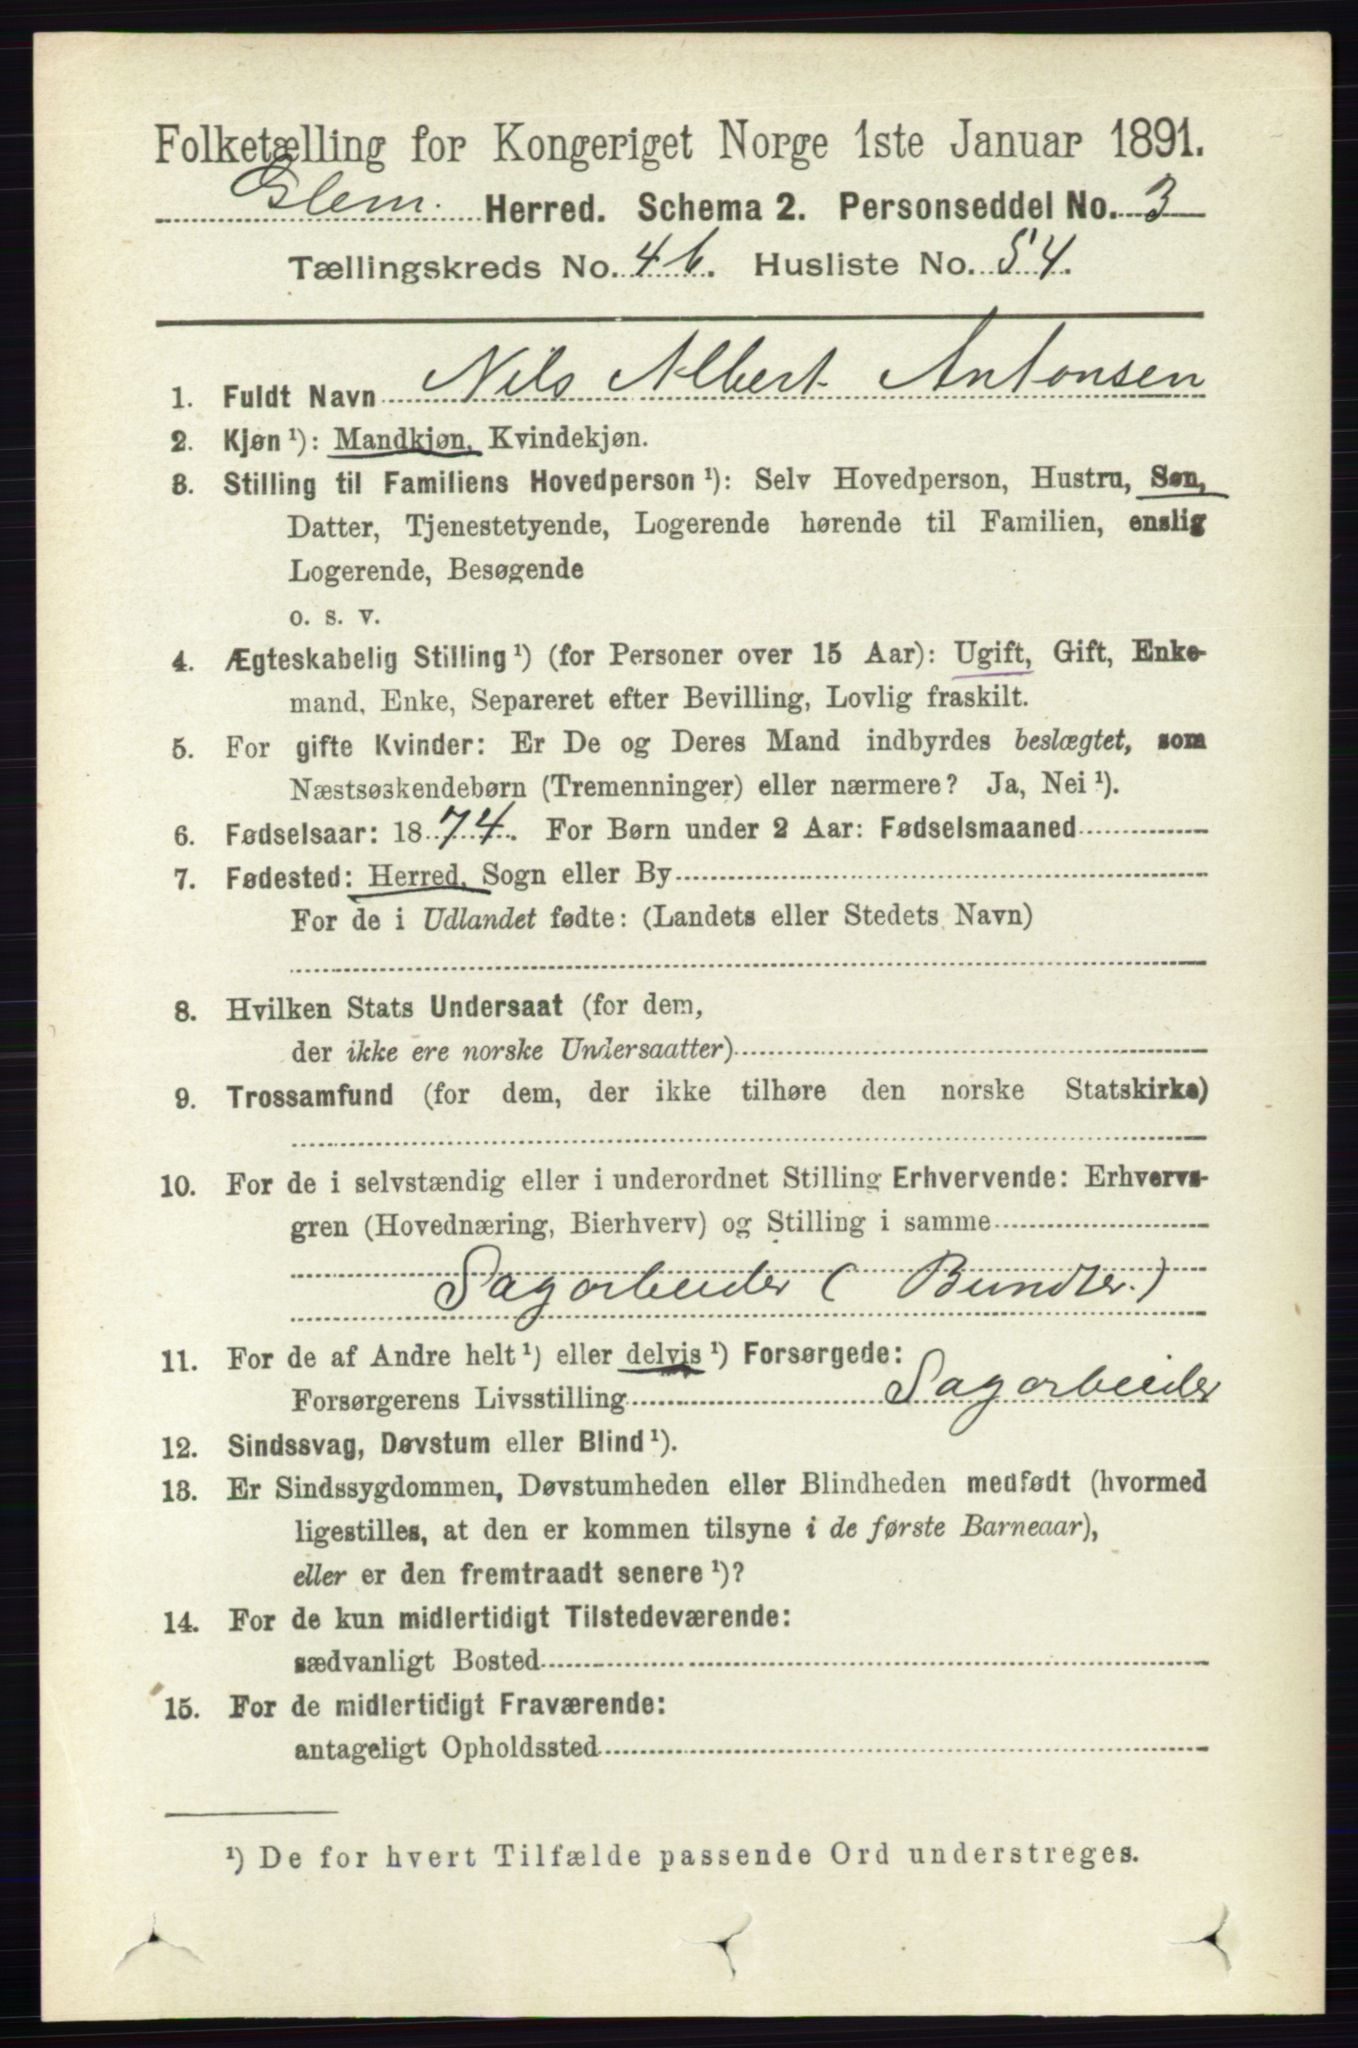 Folketælling for Kongeriget Norge 1ste Januar 1891.
Glem. Herred. Schema 2. Personseddel No. 3
Tællingskreds No. 46. Husliste No. 54.
1. Fuldt Navn Nils Albert Antonsen
2. Kjøn ¹): Mandkjøn, Kvindekjøn.
3. Stilling til Familiens Hovedperson ¹): Selv Hovedperson, Hustru, Søn,
Datter, Tjenestetyende, Logerende hørende til Familien, enslig
Logerende, Besøgende
o. s. v.
4. Ægteskabelig Stilling ¹) (for Personer over 15 Aar): Ugift, Gift, Enke-
mand, Enke, Separeret efter Bevilling, Lovlig fraskilt.
5. For gifte Kvinder: Er De og Deres Mand indbyrdes beslægtet, som
Næstsøskendebørn (Tremenninger) eller nærmere? Ja, Nei ¹).
6. Fødselsaar: 1874. For Børn under 2 Aar: Fødselsmaaned
7. Fødested: Herred, Sogn eller By
For de i Udlandet fødte: (Landets eller Stedets Navn)
8. Hvilken Stats Undersaat (for dem,
der ikke ere norske Undersaatter)
9. Trossamfund (for dem, der ikke tilhøre den norske Statskirke)
10. For de i selvstændig eller i underordnet Stilling Erhvervende: Erhvervs-
gren (Hovednæring, Bierhverv) og Stilling i samme
Sagarbeider (Bundter.)
11. For de af Andre helt ¹) eller delvis ¹) Forsørgede:
Forsørgerens Livsstilling Sagarbeider
12. Sindssvag, Døvstum eller Blind ¹).
13. Er Sindssygdommen, Døvstumheden eller Blindheden medfødt (hvormed
ligestilles, at den er kommen tilsyne i de første Barneaar),
eller er den fremtraadt senere ¹)?
14. For de kun midlertidigt Tilstedeværende:
sædvanligt Bosted
15. For de midlertidigt Fraværende:
antageligt Opholdssted
¹) De for hvert Tilfælde passende Ord understreges.